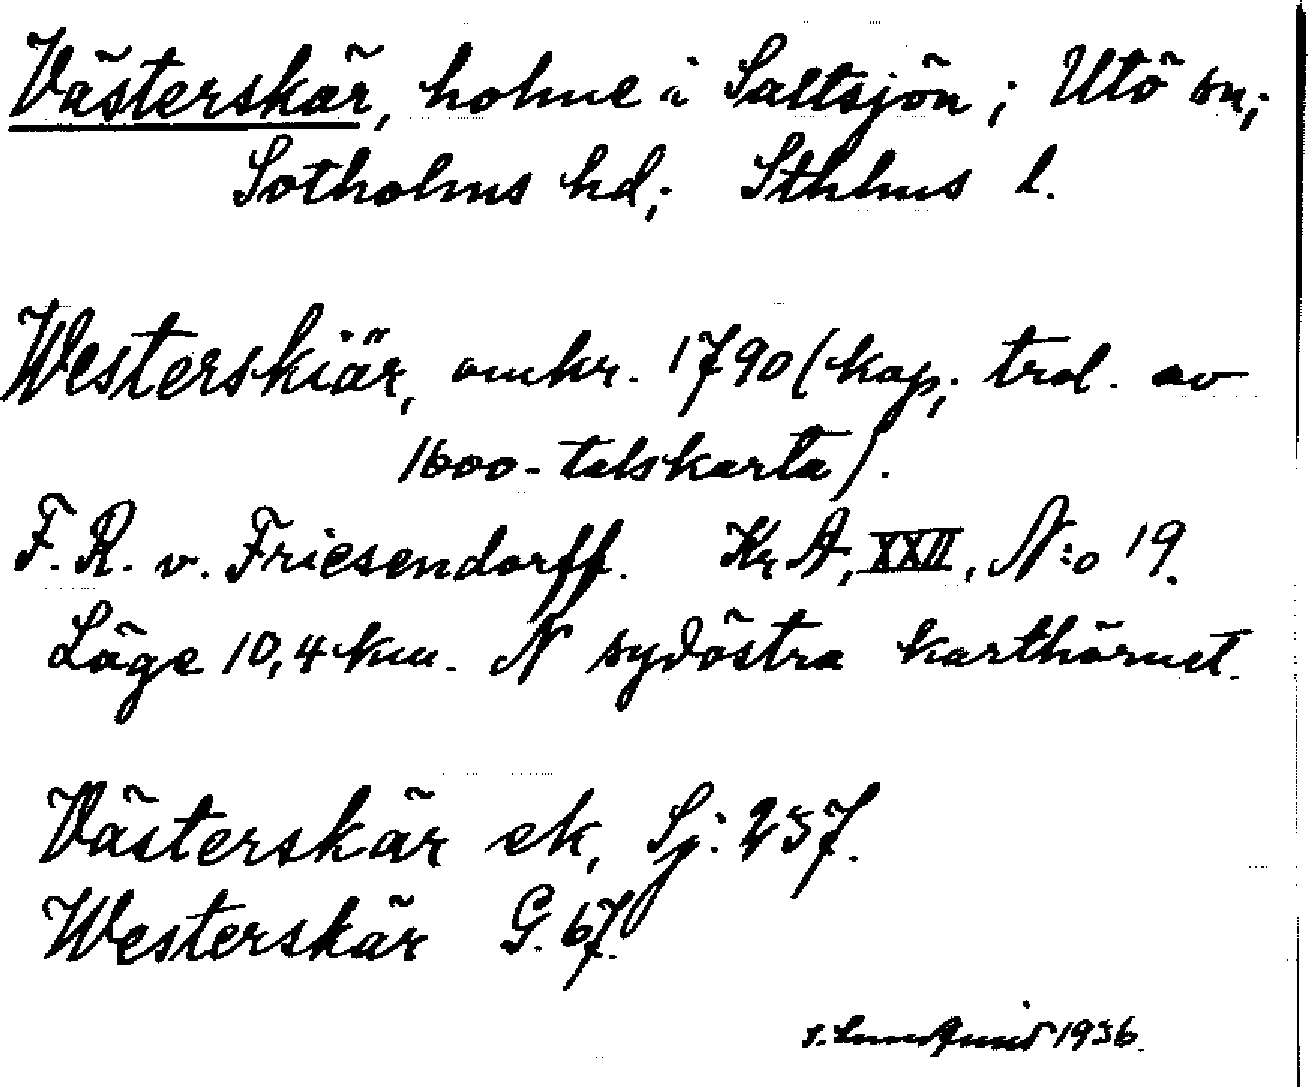 Västerskär, holme i Saltsjön; Utö sn;
Sotholms hd; Sthlms l.
Westerskiär, omkr. 1790 (kop; trol. av
1600-talskarta).
F. R. v. Friesendorff. Kr A, XXII, N:o 19.
Läge 10,4 km. N sydöstra karthörnet.
Västerskär ek, Sj: 257.
Westerskär G. 67.
Lundquist 1936.